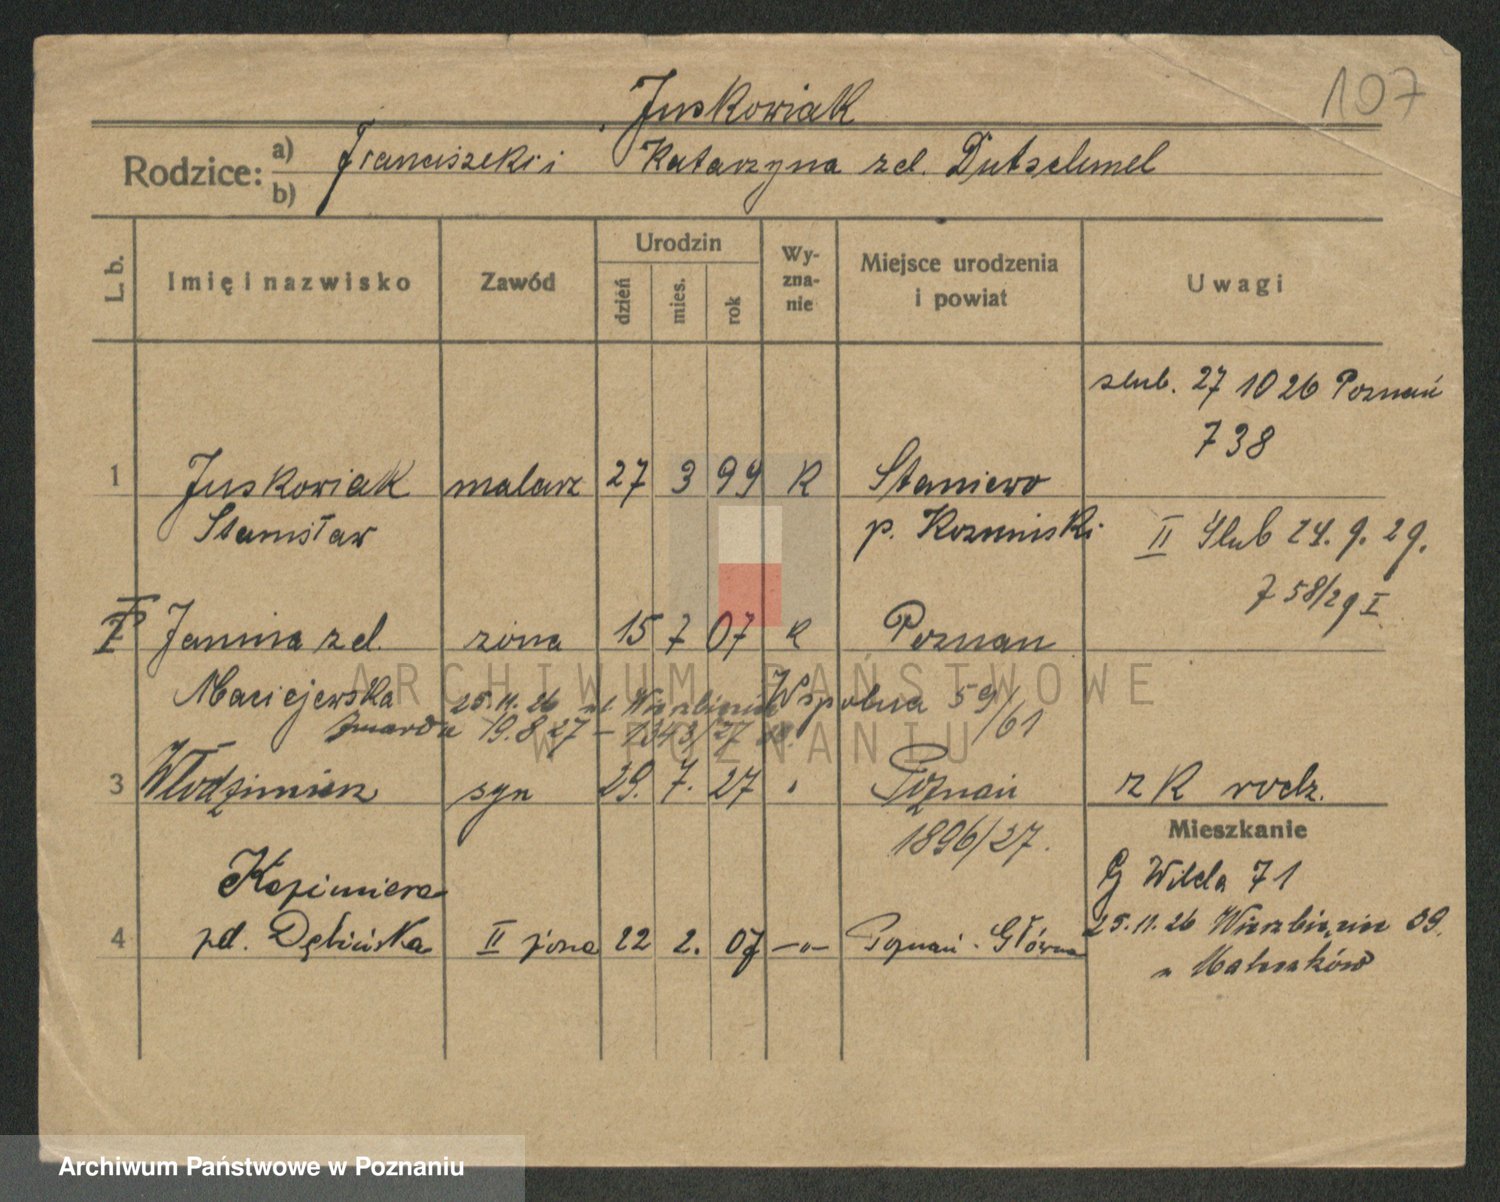 107
Juskowiak
Rodzice: a) Franciszek i Katarzyna zd. Dutschmel
b)
L. b. Imię i nazwisko Zawód Urodzin dzień mies. rok Wyznanie Miejsce urodzenia i powiat Uwagi
slub. 27 10 26 Poznań
738
1 Juskowiak malarz 27 3 99 K Staniewo
Stanisław p. Kozminski II Slub 24. 9. 29.
758/29 I
I Janina zd. zona 15 7 07 K Poznan
Maciejewska 25.11.26 Wspolna 59/61
zmarła 19.8.27 - 1343/27
3 Włodzimierz syn 29. 7. 27 Poznań z K rodz.
1896/27.
Mieszkanie
Kazimiera G Wilda 71
4 zd. Dębińska II żona 22 2. 07 -"- Poznań - Główna 25.11.26 Wierzbięcice 09.
u Matuszków
ARCHIWUM PAŃSTWOWE
W POZNANIU
Archiwum Państwowe w Poznaniu